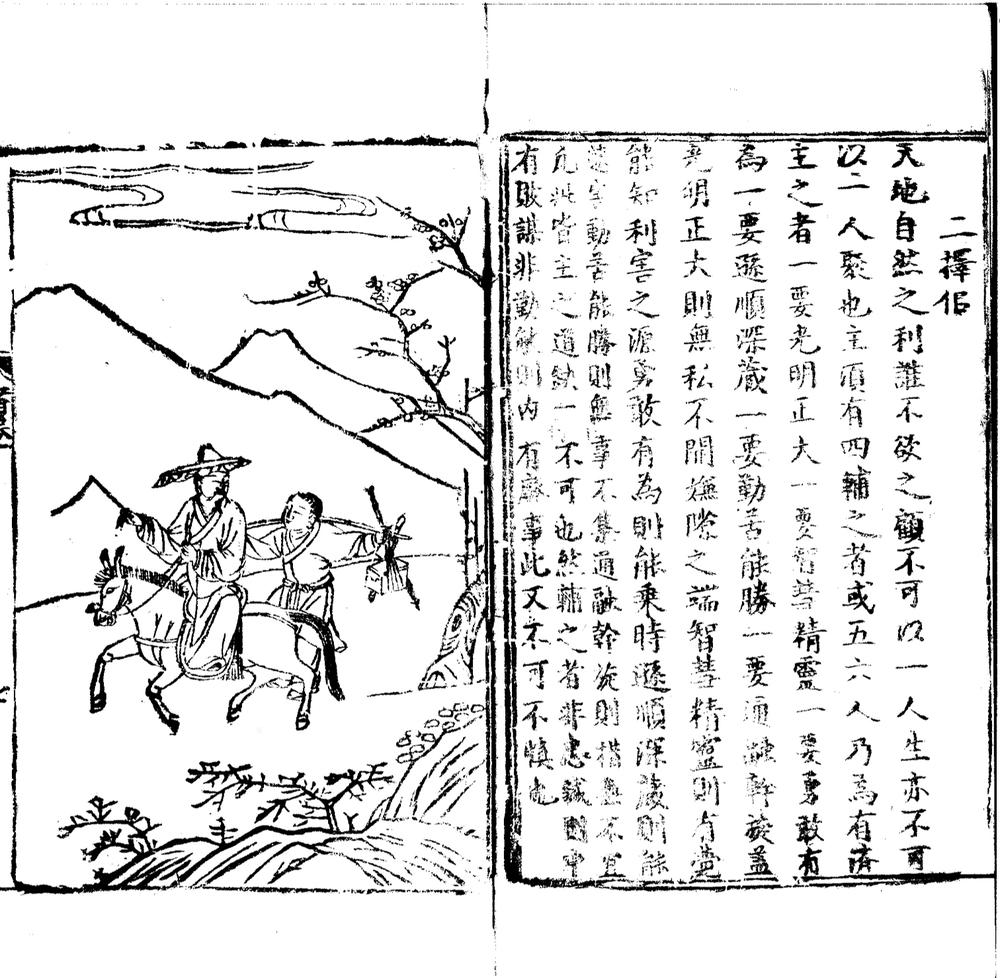 二擇侶
天地自然之利誰不欲之顧不可以一人生亦不可
以二人聚也主須有四輔之者或五六人乃為有濟
主之者一要光明正大一要智彗精靈一要勇敢有
為一要遜順深藏一要勤苦能勝一要通融幹旋蓋
光明正大則無私不開嫌隙之端智彗精靈則有
能知利害之源勇敢有為則能乘時遜順深藏則能
害勤苦能勝則無事不集通融幹旋則措無不宜
凡此皆主之道缺一不可也然輔之者非忠誠則中
有敗謀非勤能則內有廢事此又不可不慎也